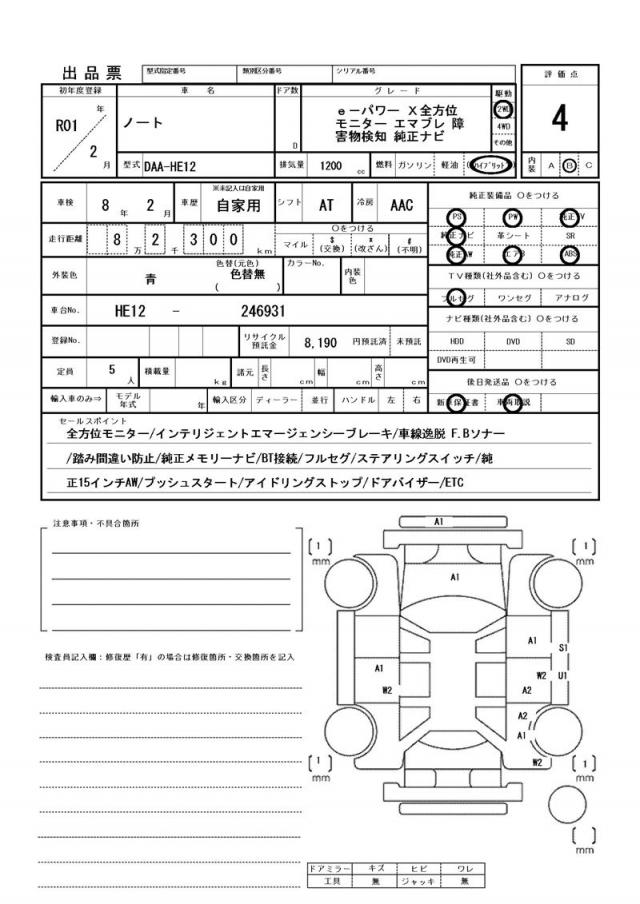 出品票 型式指定番号 類別区分番号 シリアル番号 評価点
初年度登録 車名 ドア数 グレード 駆動 4
R01 年 2 月 ノート D e-パワー X全方位
モニター エマブレ 障
害物検知 純正ナビ
2WD
4WD
その他
型式 DAA-HE12 排気量 1200 cc 燃料 ガソリン 軽油 (ハイブリット) 内装 A B C
車検 8 年 2 月 車歴 ※未記入は自家用 自家用 シフト AT 冷房 AAC 純正装備品 ○をつける
PS PW 純正TV
走行距離 8 万 2 千 3 0 0 km ○をつける
マイル $(交換) *(改ざん) #(不明)
純正ナビ 革シート SR
純正AW エアB ABS
外装色 青 色替(元色) 色替無 ( ) カラーNo. 内装色
TV種類(社外品含む) ○をつける
フルセグ ワンセグ アナログ
車台No. HE12 - 246931
ナビ種類(社外品含む) ○をつける
登録No. リサイクル預託金 8,190 円預託済 未預託
HDD DVD SD
DVD再生可
定員 5 人 積載量 kg 諸元 長さ cm 幅 cm 高さ cm
後日発送品 ○をつける
輸入車のみ⇒ モデル年式 年 輸入区分 ディーラー 並行 ハンドル 左 右
新車保証書 車両取説
セールスポイント
全方位モニター/インテリジェントエマージェンシーブレーキ/車線逸脱 F.Bソナー
/踏み間違い防止/純正メモリーナビ/BT接続/フルセグ/ステアリングスイッチ/純
正15インチAW/プッシュスタート/アイドリングストップ/ドアバイザー/ETC
注意事項・不具合箇所
A1
[1] mm [1] mm
A1
検査員記入欄：修復歴「有」の場合は修復箇所・交換箇所を記入
A1 S1
A1 W2 U1
W2 A2
A2
A1
W2
[1] mm [1] mm
[ ] mm
ドアミラー キズ ヒビ ワレ
工具 無 ジャッキ 無